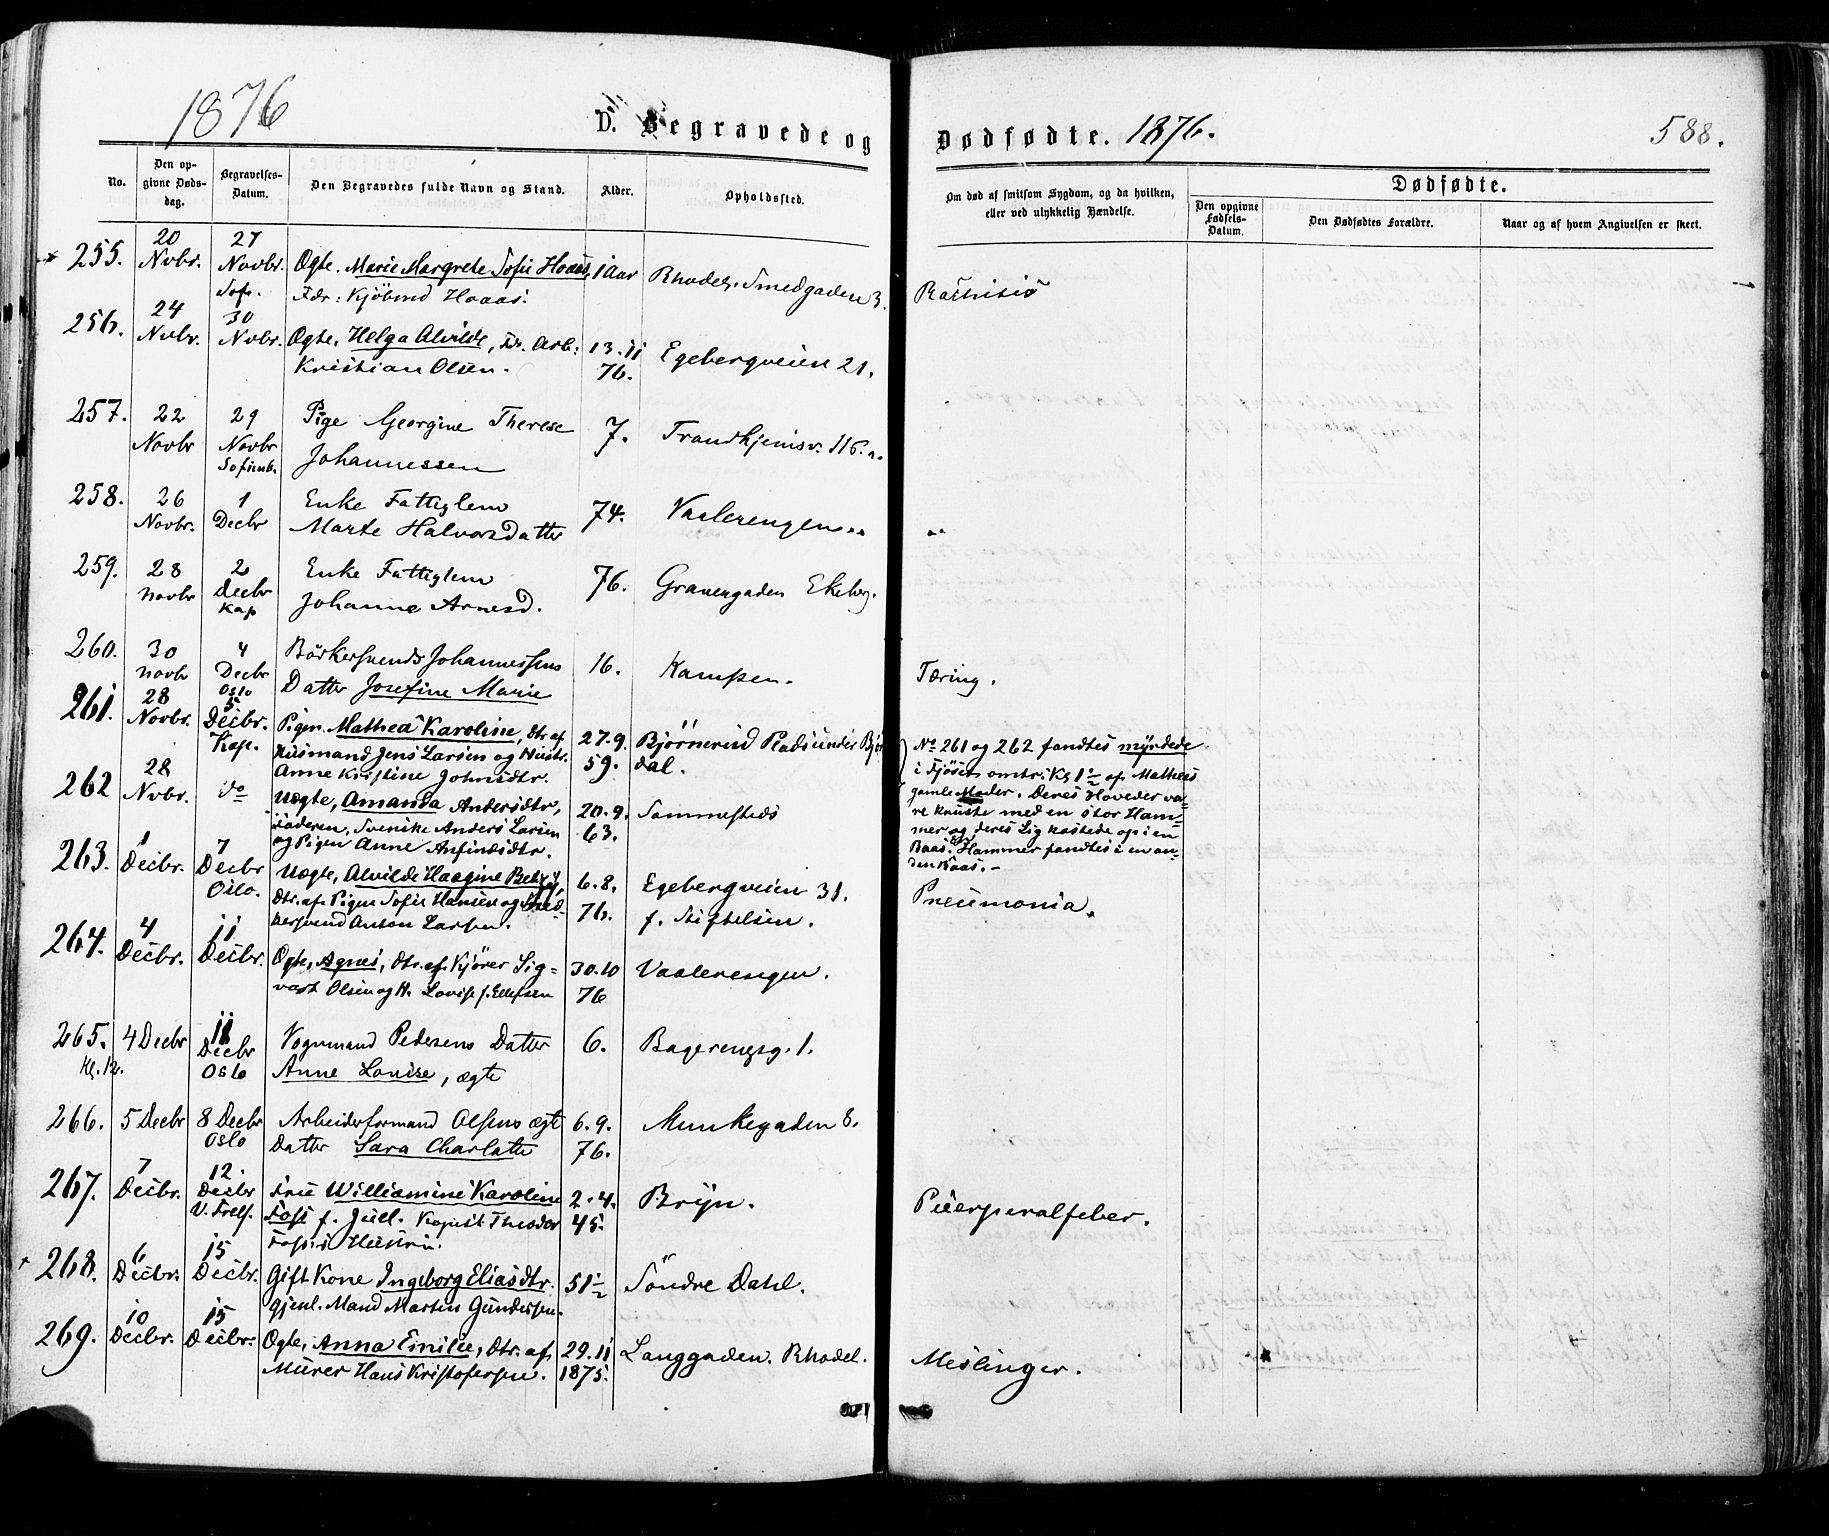 1876
D. Begravede og
Dødfødte. 1876.
588.
No.
Den opgivne Dødsdag.
Begravelses-Datum.
Den Begravedes fulde Navn og Stand.
Alder.
Opholdssted.
Om død af smitsom Sygdom, og da hvilken, eller ved ulykkelig Hændelse.
Dødfødte.
Den opgivne Fødsels-Datum.
Den Dødfødtes Forældre.
Naar og af hvem Angivelsen er skeet.
255. 20 Novbr. 27 Novbr. Sofi. Ægte, Marie Margrete Sofie Haaas, 1 Aar Rhodel. Smedgaden 3. Rachitis
Fdr: Kjøbmd Haaas.
256. 24 Novbr. 30 Novbr. Ægte, Helga Alvilde, Fr. Arb: 13.11 Egebergveien 21.
Kristian Olsen. 76.
257. 22 Novbr 29 Novbr Sofienb. Pige Georgine Therese 7. Trondhjemsv. 116.a.
Johannessen
258. 26 Novbr. 1 Decbr Enke Fattiglem 74. Vaalerengen „
Marte Halvorsdatter
259. 28 Novbr 2 Decbr Kap Enke Fattiglem 76. Gravergaden Ekeberg.
Johanne Arnesd.
260. 30 Novbr 4 Decbr Oslo Börkersvends Johannessens 16. Kampen. Tæring.
Datter Josefine Marie
261. 28 Novbr. 5 Decbr. Kap. Pigen Mathea Karoline, dtr. af 27.9. Bjørnerud Plads under Bjør
Husmand Jens Larsen og Hustr. 59. dal.
Anne Kristine Johnsdtr.
No 261 og 262 fandtes myrdede
i Fjøset omtr. Kl 1½ af Matheas
gamle Moder. Deres Hoveder va-
re knuste med en stor Ham-
mer og deres Lig kastede op i en
Baas. Hammer fandtes i en an-
den Baas. –
262 28 Novbr. do Uægte, Amanda Andersdtr, 20.9. Sammesteds
Faderen, Svenske Anders Larsen 63.
og Pigen Anne Anfinsdtr.
263. 1 Decbr. 7 Decbr Oslo. Uægte, Alvilde Haagine Betzy, 6.8. Egebergveien 31. Pneumonia.
dtr. af Pigen Sofie Hansen og Sned- 76. f. Stiftelsen.
kersvend Anton Larsen.
264. 4 Decbr. 11 Decbr. Ægte, Agnes, dtr. af Kjører Sig- 30.10 Vaalerengen.
vart Olsen og H. Lovise f. Ellefsen 76
265. Kl. 12. 4 Decbr 11 Decbr Oslo Vognmand Pedersens Datter 6. Bagerengsg. 1.
Anne Lovise, ægte
266. 5 Decbr 8 Decbr Oslo Arbeiderformand Olsens ægt 6.9. Munkegaden 8.
Datter Sara Charlotte 76.
267. 7 Decbr. 12. Decbr V. Frels. Frue Williamine Karoline 2.4. Bryn. Puerperalfeber.
Foss f. Juell. Kapist Theodor 45.
Foss's Hustru.
268. 6 Decbr. 15 Decbr. Gift Kone Ingeborg Eliasdtr. 51½ Söndre Dahl.
gjenl. Mand Morten Gundersen.
269. 10 Decbr. 15 Decbr. Ægte, Anna Emilie, dtr. af 29.11 Langgaden. Rhodel. Meslinger.
Murer Hans Kristofersen. 1875.